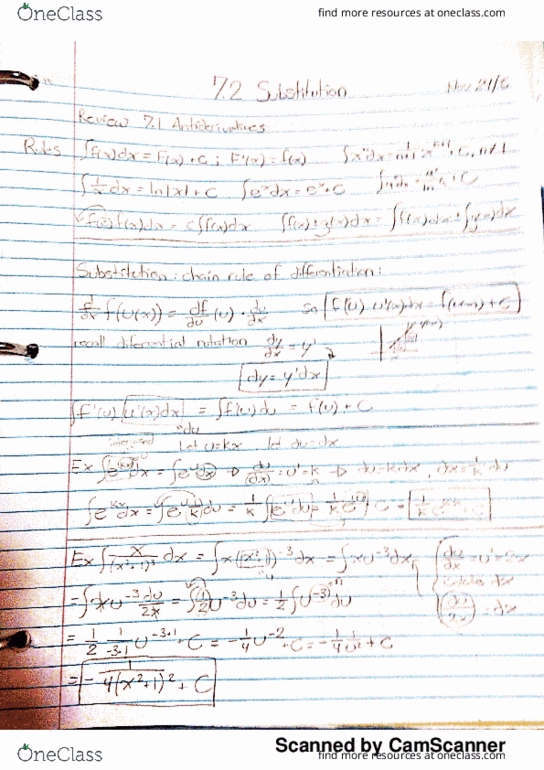 OneClass find more resources at oneclass.com
7.2 Substitution Nov 24/15
Review 7.1 Antiderivatives
Rules ∫f(x)dx = F(x) + C ; F'(x) = f(x) ∫xⁿdx = 1/(n+1) xⁿ⁺¹ + C, n≠-1
∫1/x dx = ln|x| + C ∫eˣdx = eˣ + C
∫cf(x)dx = c∫f(x)dx ∫f(x) ± g(x)dx = ∫f(x)dx ± ∫g(x)dx
Substitution: chain rule of differentiation:
d/dx f(u(x)) = df/du (u) · du/dx so ∫f'(u) · u'(x)dx = f(u(x)) + C
recall differential notation dy/dx = y'
dy = y'dx
∫f'(u) u'(x)dx = ∫f'(u)du = f(u) + C
du
integrand Let u=kx, let du=dx
Ex ∫e^(kx)dx = ∫e^u dx → du/dx = u' = k → du = kdx, dx = 1/k du
∫e^(kx)dx = ∫e^u 1/k du = 1/k ∫e^u du = 1/k e^u + C = 1/k e^(kx) + C
Ex ∫x/(x²+1)³ dx = ∫x(x²+1)⁻³dx = ∫xu⁻³dx, du/dx = u' = 2x
u
= ∫xu⁻³ du/2x = ∫1/2 u⁻³du = 1/2 ∫u⁻³du du/2x = dx
= 1/2 · 1/(-3+1) u⁻³⁺¹ + C = -1/4 u⁻² + C = -1/4 1/u² + C
= -1/(4(x²+1)²) + C
Scanned by CamScanner
OneClass find more resources at oneclass.com